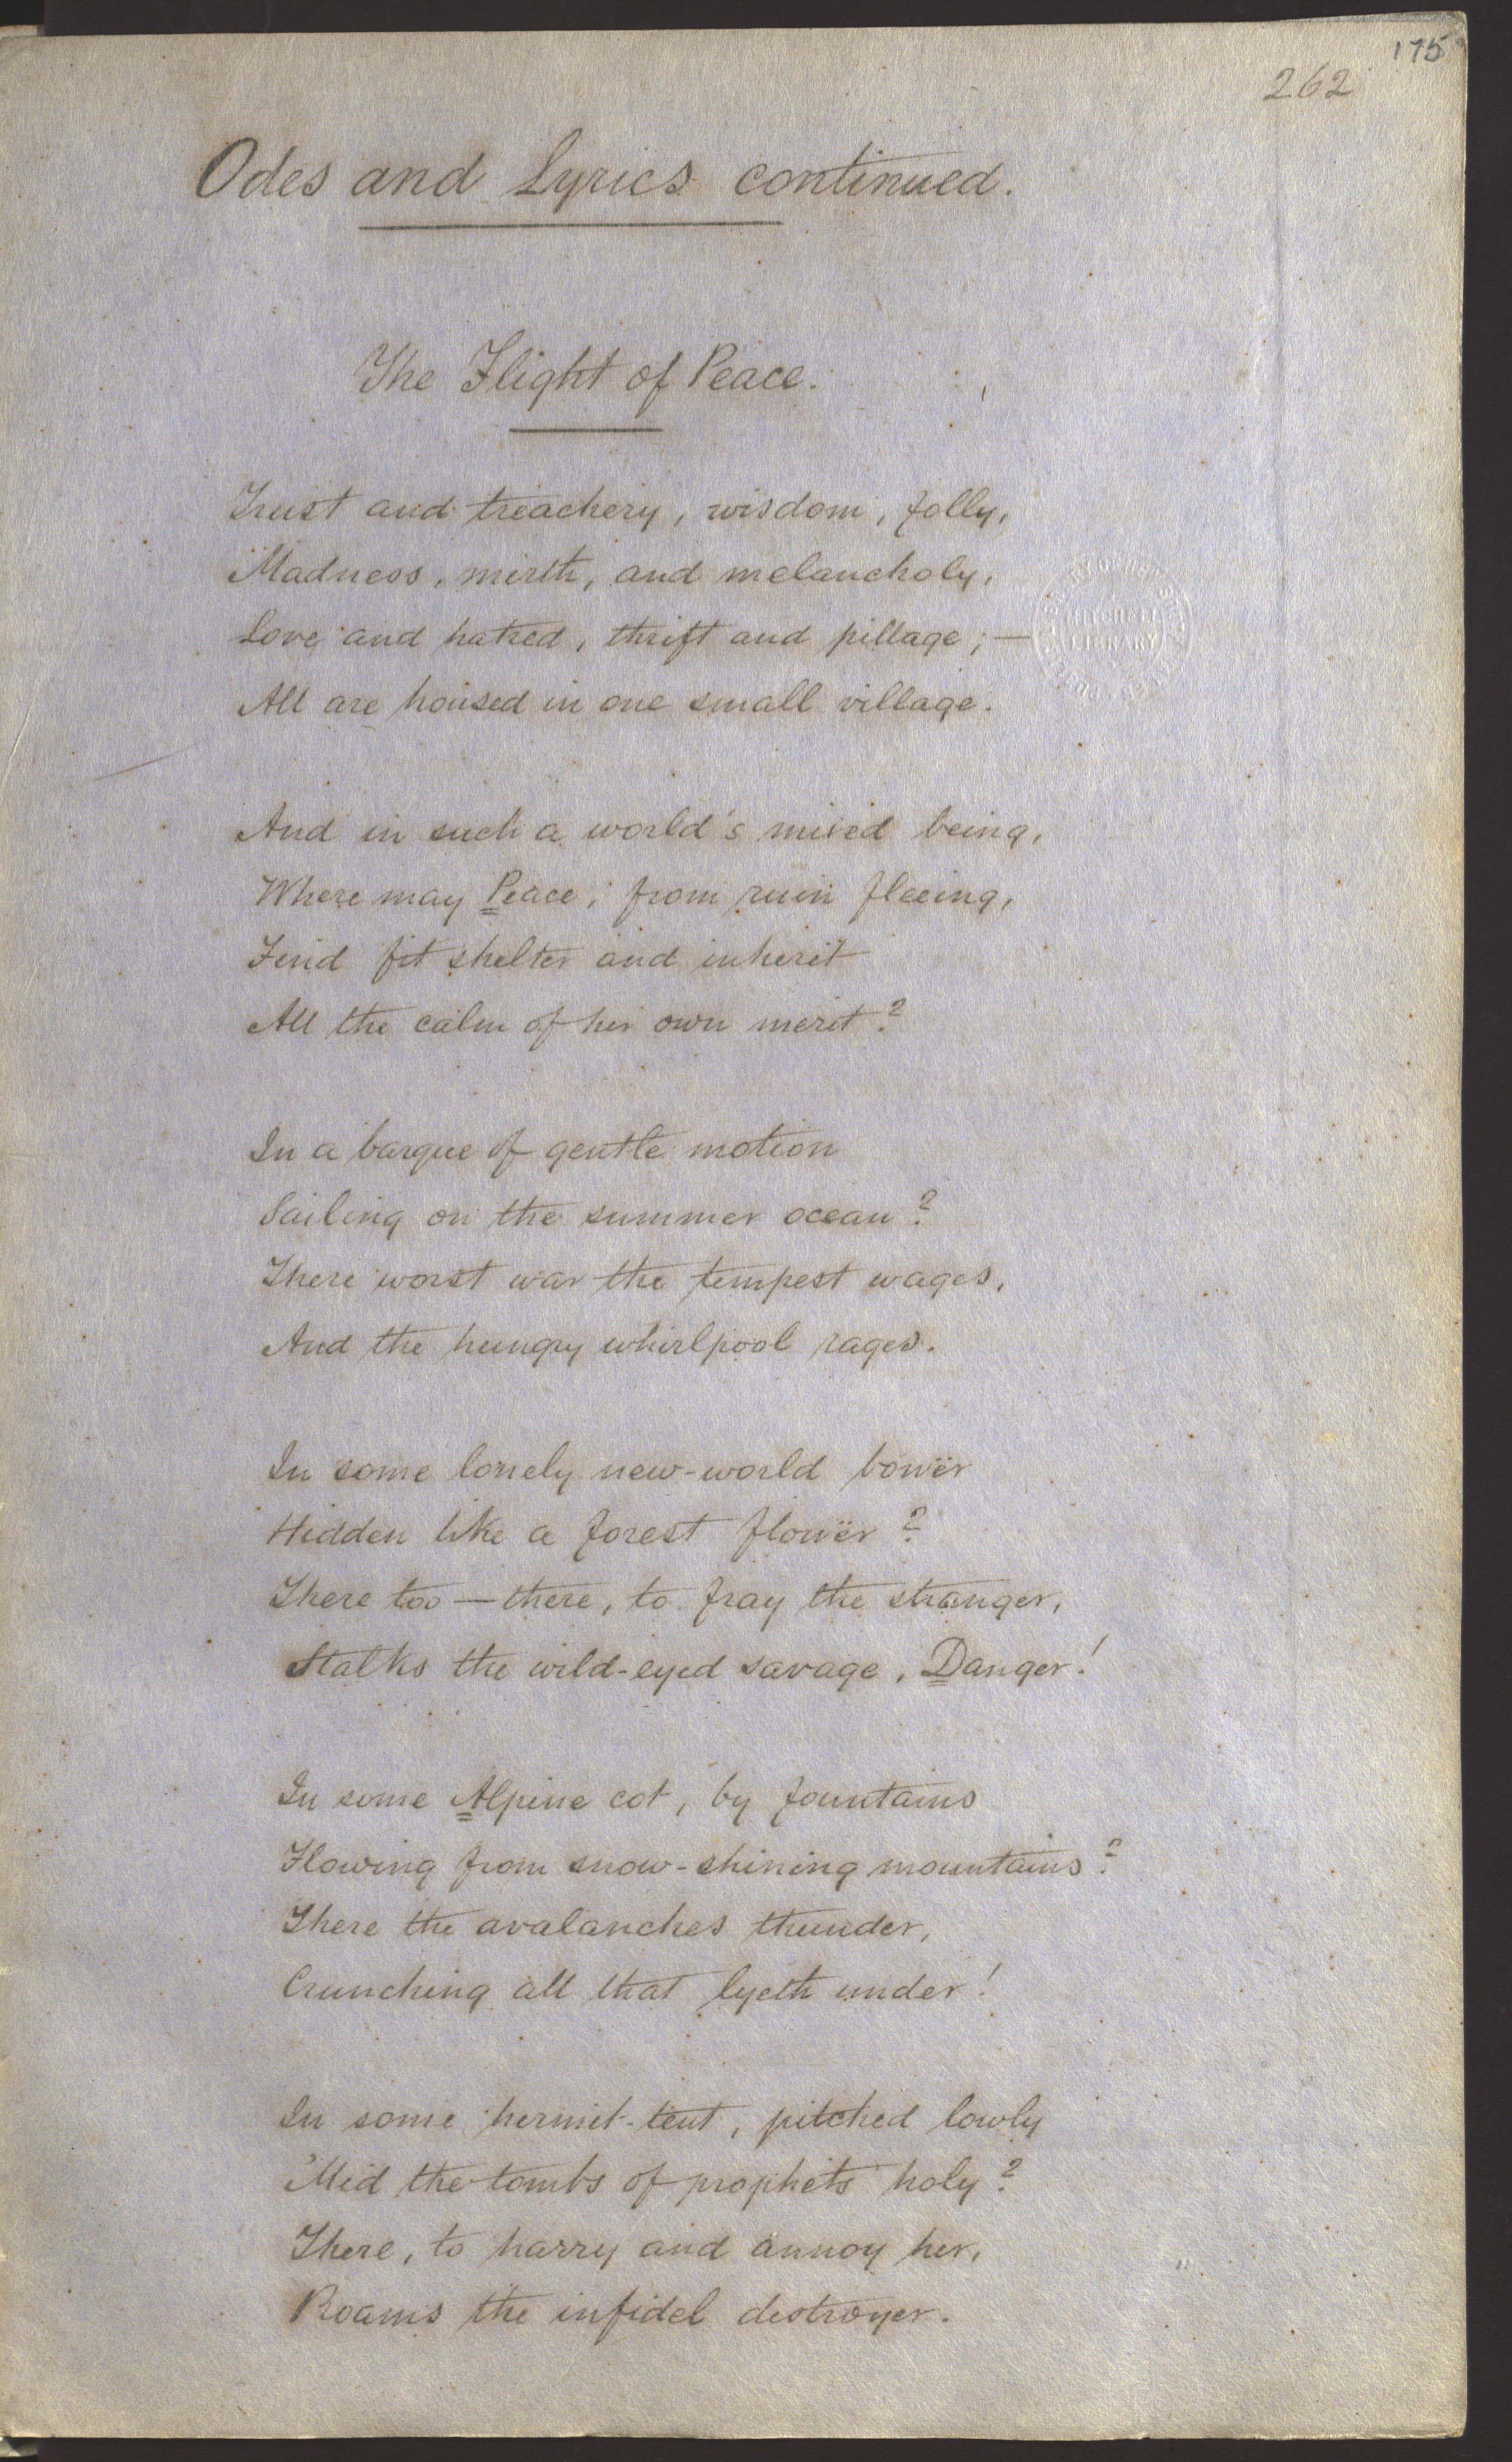 175
262
Odes and Lyrics continued.
The Flight of Peace.
Trust and treachery, wisdom, folly,
Madness, mirth, and melancholy,
Love and hatred, thrift and pillage; —
All are housed in one small village.
And in such a world's mixed being,
Where may Peace, from ruin fleeing,
Find fit shelter and inherit
All the calm of her own merit?
In a barque of gentle motion
Sailing on the summer ocean?
There worst war the tempest wages,
And the hungry whirlpool rages.
In some lonely new-world bowër
Hidden like a forest flowër?
There too — there, to fray the stranger,
Stalks the wild-eyed savage, Danger!
In some Alpine cot, by fountains
Flowing from snow-shining mountains?
There the avalanches thunder,
Crunching all that lyeth under!
In some hermit-tent, pitched lowly
'Mid the tombs of prophets holy?
There, to harry and annoy her,
Roams the infidel destroyer.
MITCHELL
LIBRARY